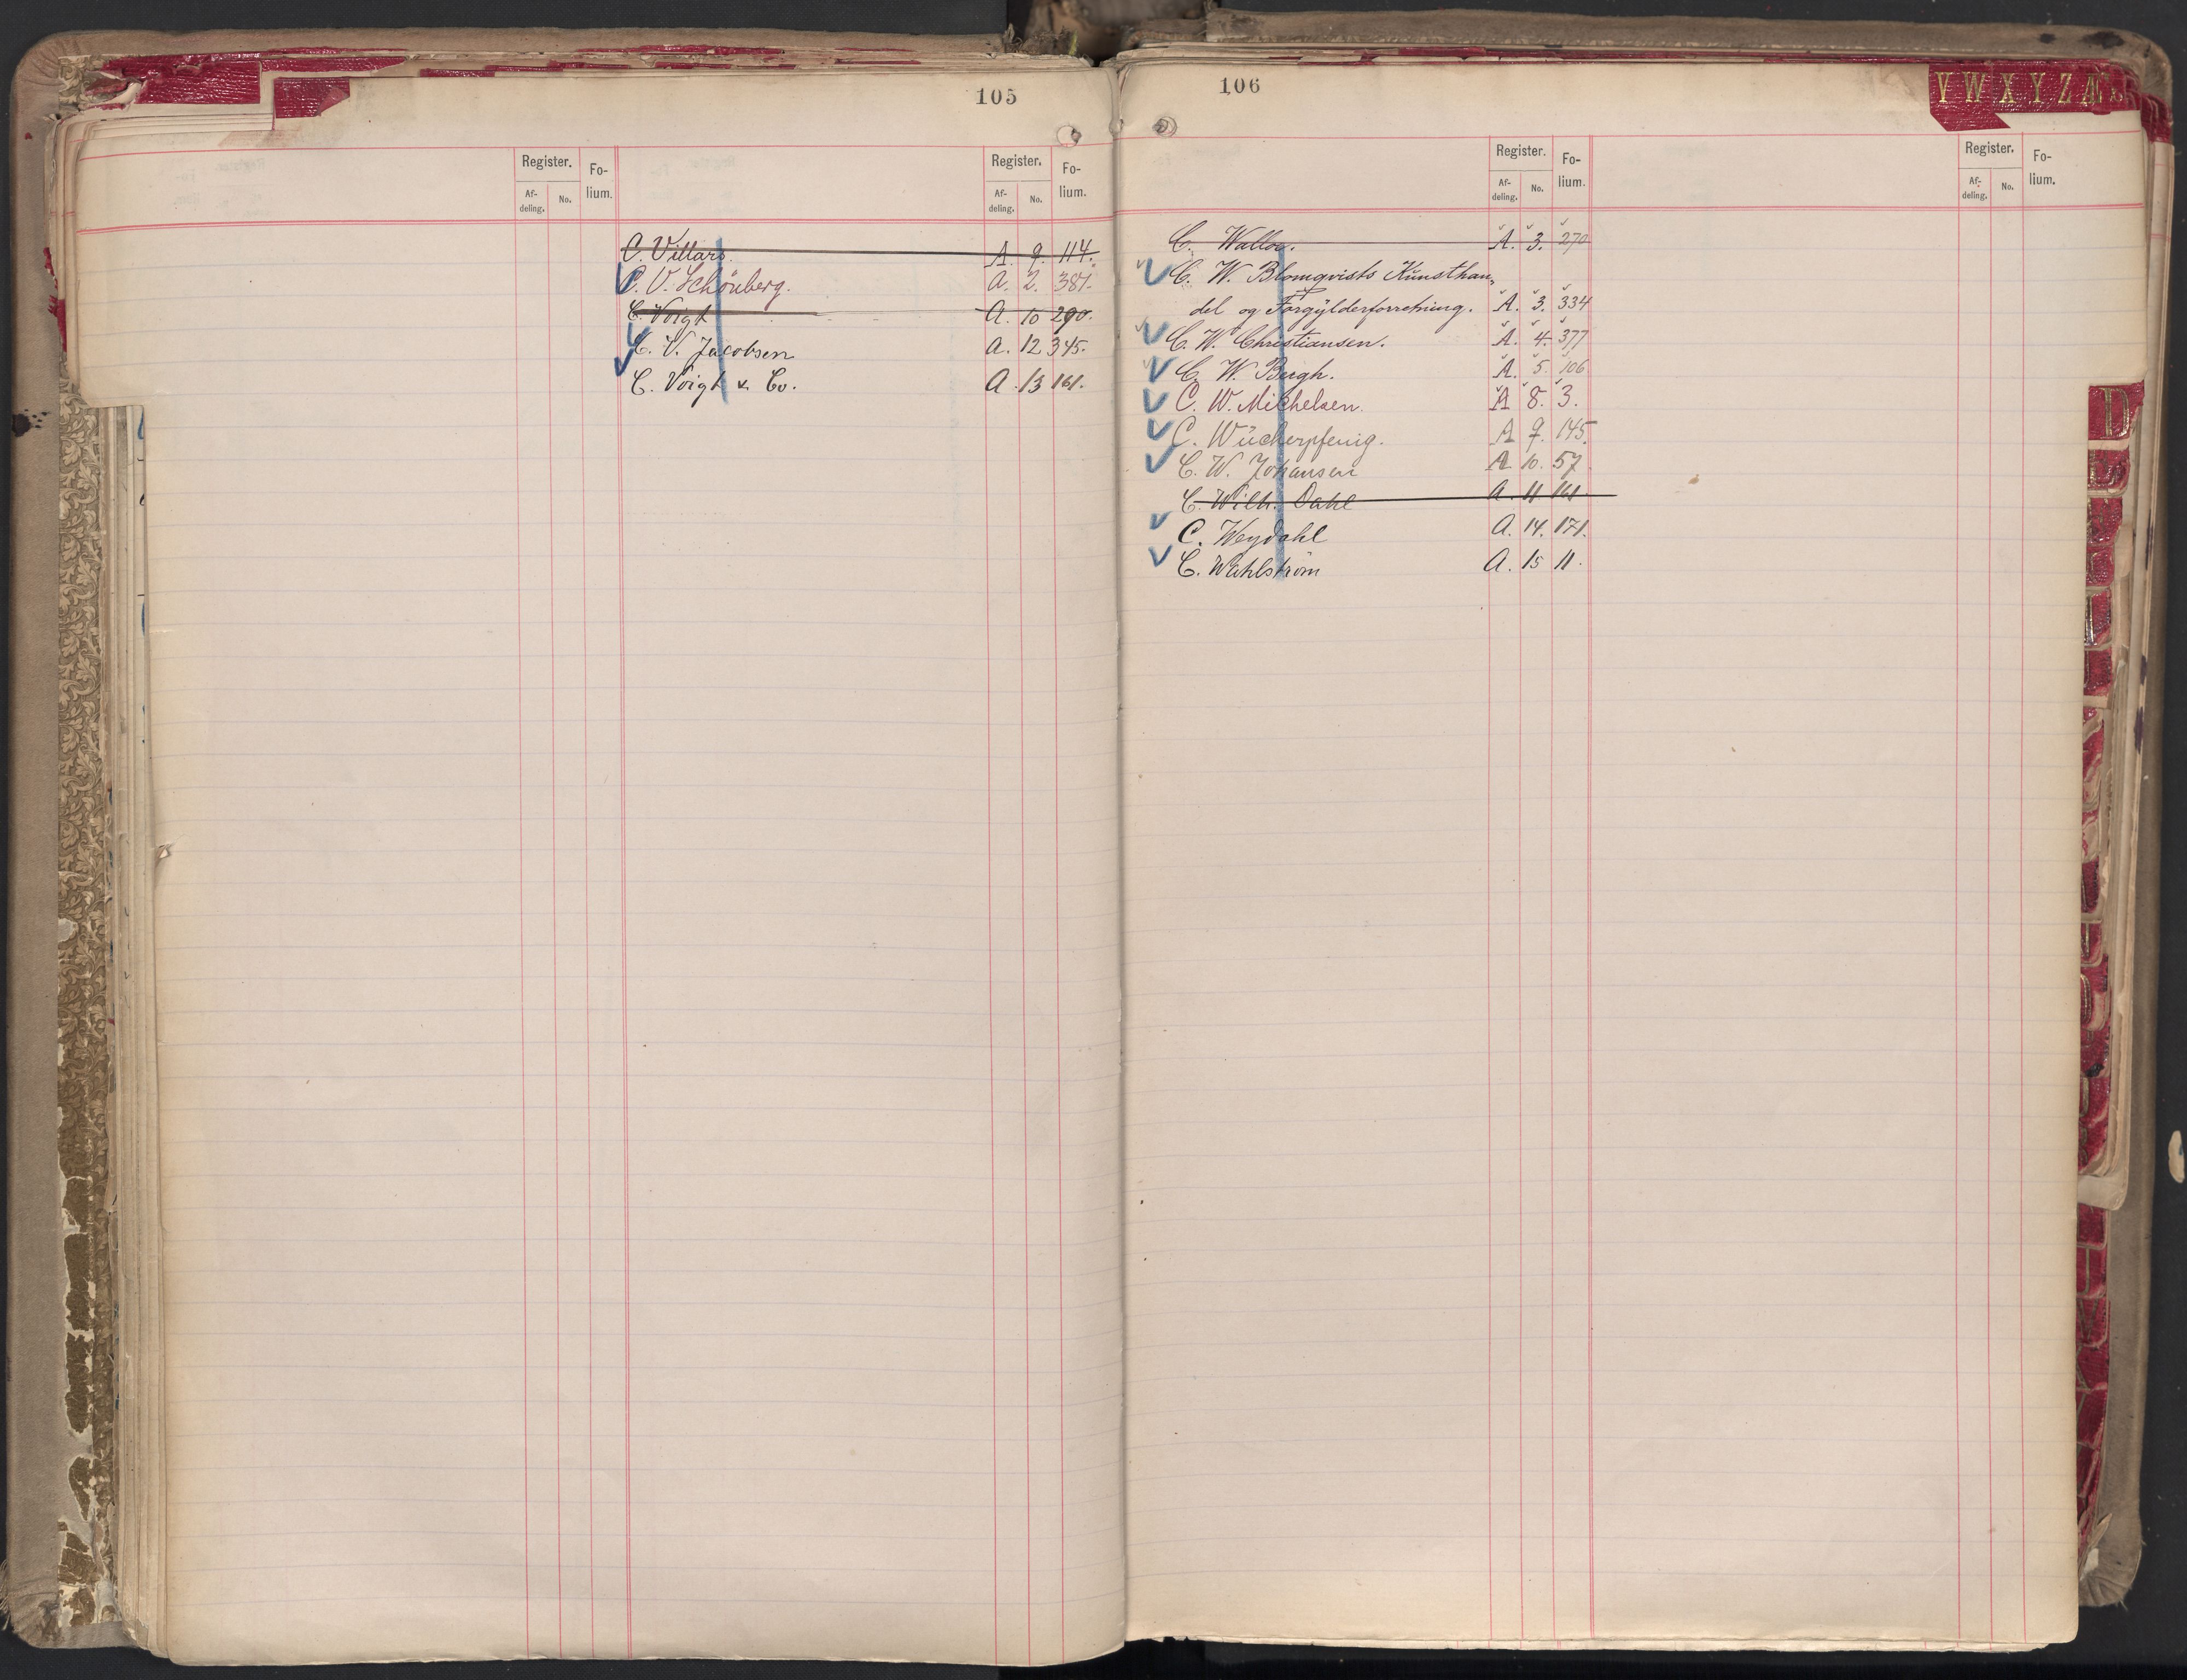 105
Register. Fo-
lium.
Af-
deling. No.
Register. Fo-
lium.
Af-
deling. No.
C. Villars. A. 9. 114.
C. V. Schönberg. A. 2. 381.
C. Voigt A. 10 290.
C. V. Jacobsen A. 12 345.
C. Voigt & Co. A. 13 161.
106
V W X Y Z Æ
Register. Fo-
lium.
Af-
deling. No.
Register. Fo-
lium.
Af-
deling. No.
C. Walloe. A. 3. 270
C. W. Blomqvists Kunsthan„
del og Forgylderforretning. A. 3. 334
C. W. Christiansen. A. 4. 377
C. W. Bergh. A. 5. 106
C. W. Michelsen. A 8. 3.
C. Wücherpfenig. A 9. 145.
C. W. Johansen A 10. 57
C. Wilh. Dahl A. 11 161.
C. Weydahl A. 14. 171.
C. Wahlstrøm A. 15 11.
D